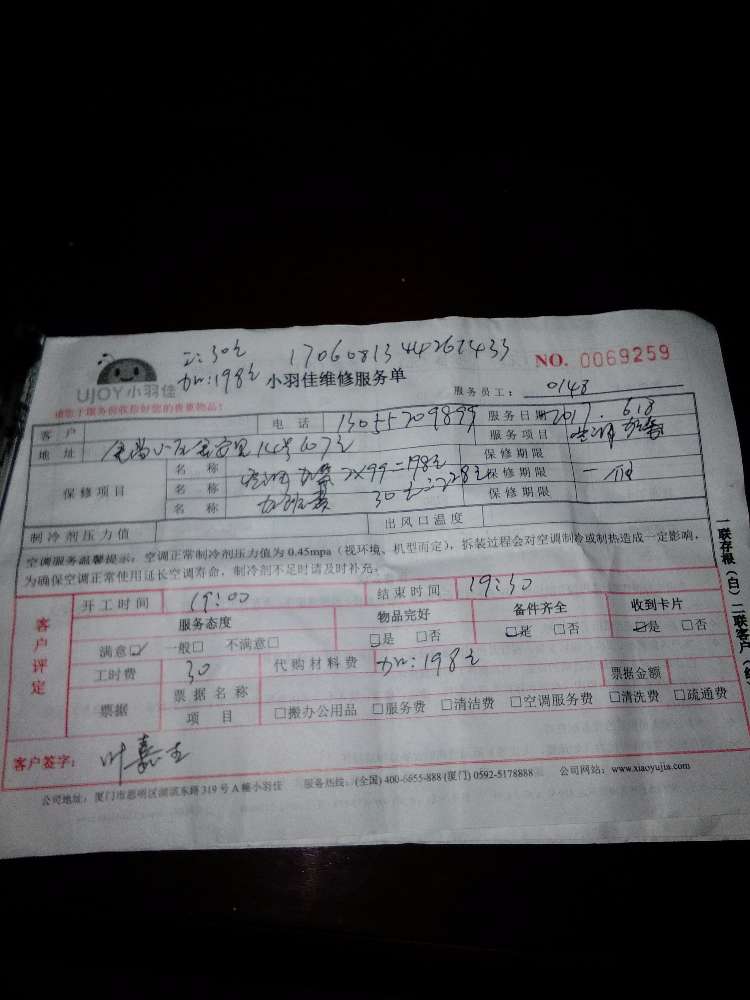 工:30元 1706081344267433 NO. 0069259
加:198元
UJOY小羽佳 小羽佳维修服务单
服务员工: 0148
客户 电话 13055709899 服务日期 2017.6.18
地址 14号607 服务项目 空调
保修期限
保修项目
名称 空调 2×99=198元 保修期限
名称 30 =228元 保修期限 一
制冷剂压力值 出风口温度
空调服务温馨提示:空调正常制冷剂压力值为 0.45mpa(视环境、机型而定),拆装过程会对空调制冷或制热造成一定影响,
为确保空调正常使用延长空调寿命,制冷剂不足时请及时补充。
客户评定
开工时间 19:00 结束时间 19:30
服务态度 物品完好 备件齐全 收到卡片
满意☑ 一般□ 不满意□ □是 □否 □是 □否 □是 □否
工时费 30 代购材料费 加:198元 票据金额
票据 票据名称
项目 □搬办公用品 □服务费 □清洁费 □空调服务费 □清洗费 □疏通费
客户签字: 叶嘉
公司地址:厦门市思明区湖滨东路319号A幢小羽佳 服务热线:(全国) 400-6655-888 (厦门) 0592-5178888 公司网站:www.xiaoyujia.com
一联存根(白)二联客户